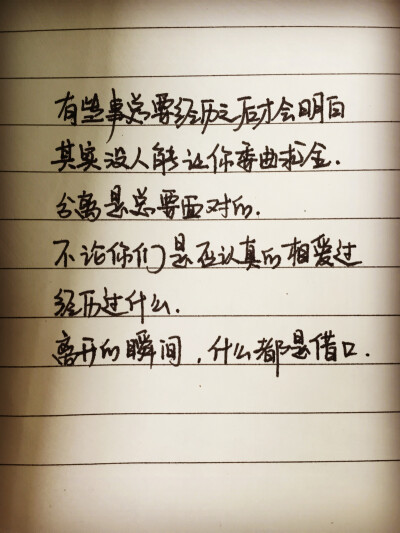 有些事总要经历之后才会明白
其实没人能让你委曲求全.
分离是总要面对的.
不论你们是否认真的相爱过
经历过什么.
离开的瞬间,什么都是借口.